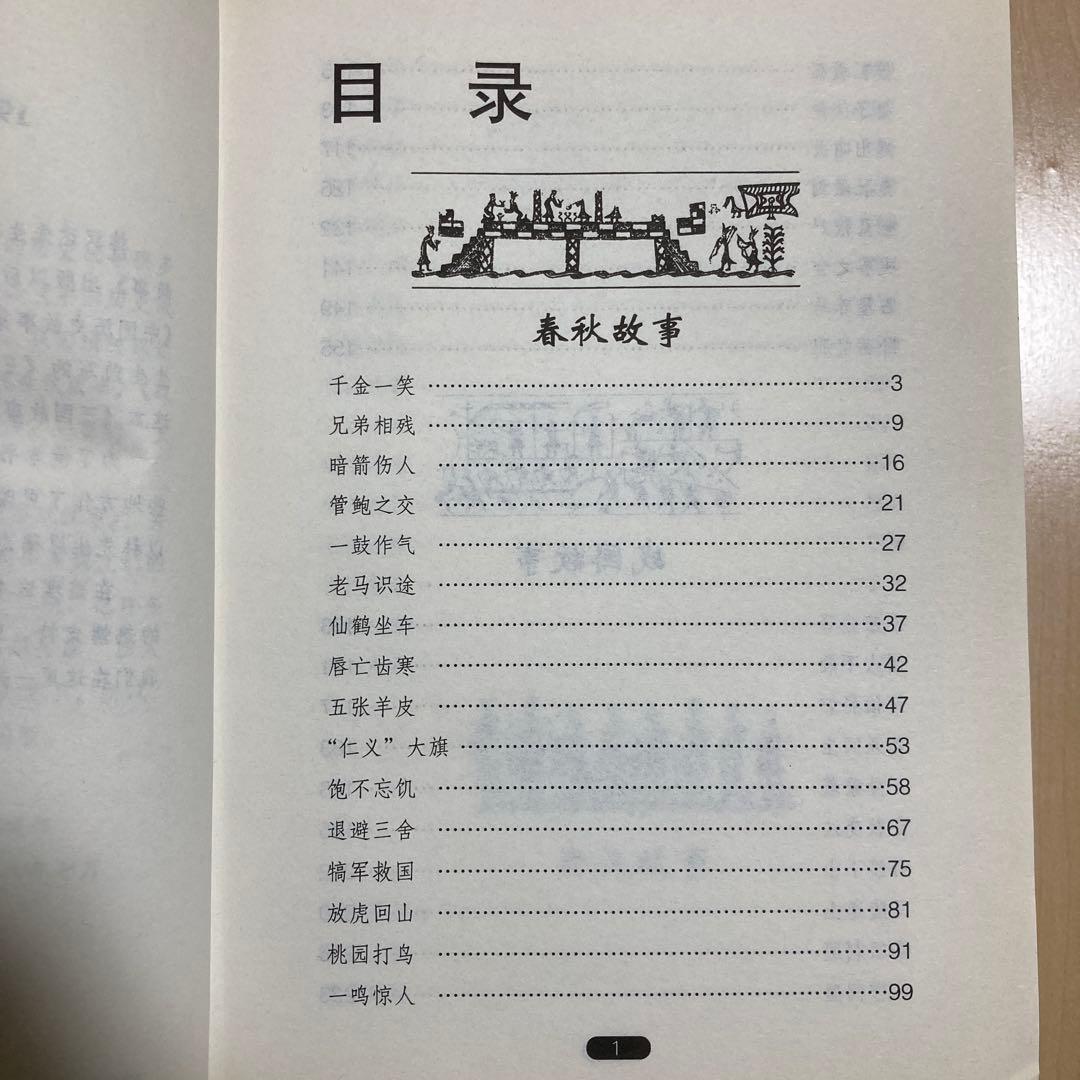 目 录
春秋故事
千金一笑 ………………………………………………3
兄弟相残 ………………………………………………9
暗箭伤人 ………………………………………………16
管鲍之交 ………………………………………………21
一鼓作气 ………………………………………………27
老马识途 ………………………………………………32
仙鹤坐车 ………………………………………………37
唇亡齿寒 ………………………………………………42
五张羊皮 ………………………………………………47
“仁义”大旗 ………………………………………………53
饱不忘饥 ………………………………………………58
退避三舍 ………………………………………………67
犒军救国 ………………………………………………75
放虎回山 ………………………………………………81
桃园打鸟 ………………………………………………91
一鸣惊人 ………………………………………………99
1